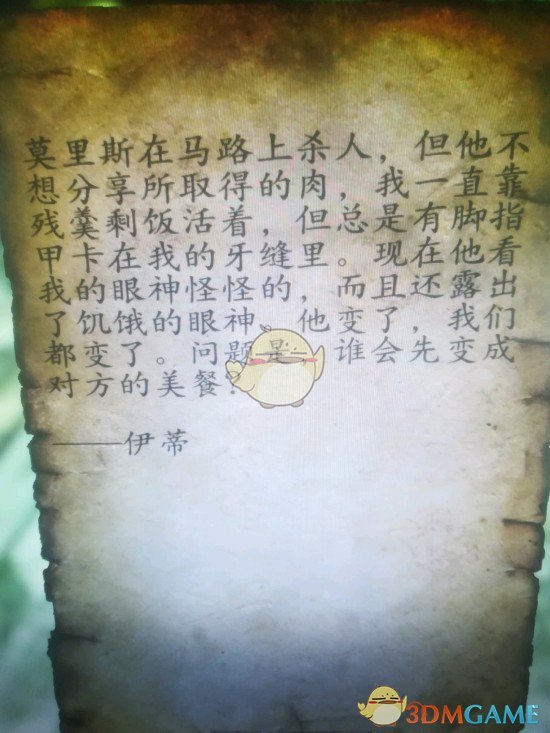 莫里斯在马路上杀人，但他不
想分享所取得的肉，我一直靠
残羹剩饭活着，但总是有脚指
甲卡在我的牙缝里。现在他看
我的眼神怪怪的，而且还露出
了饥饿的眼神，他变了，我们
都变了。问题是，谁会先变成
对方的美餐？
——伊蒂
3DMGAME